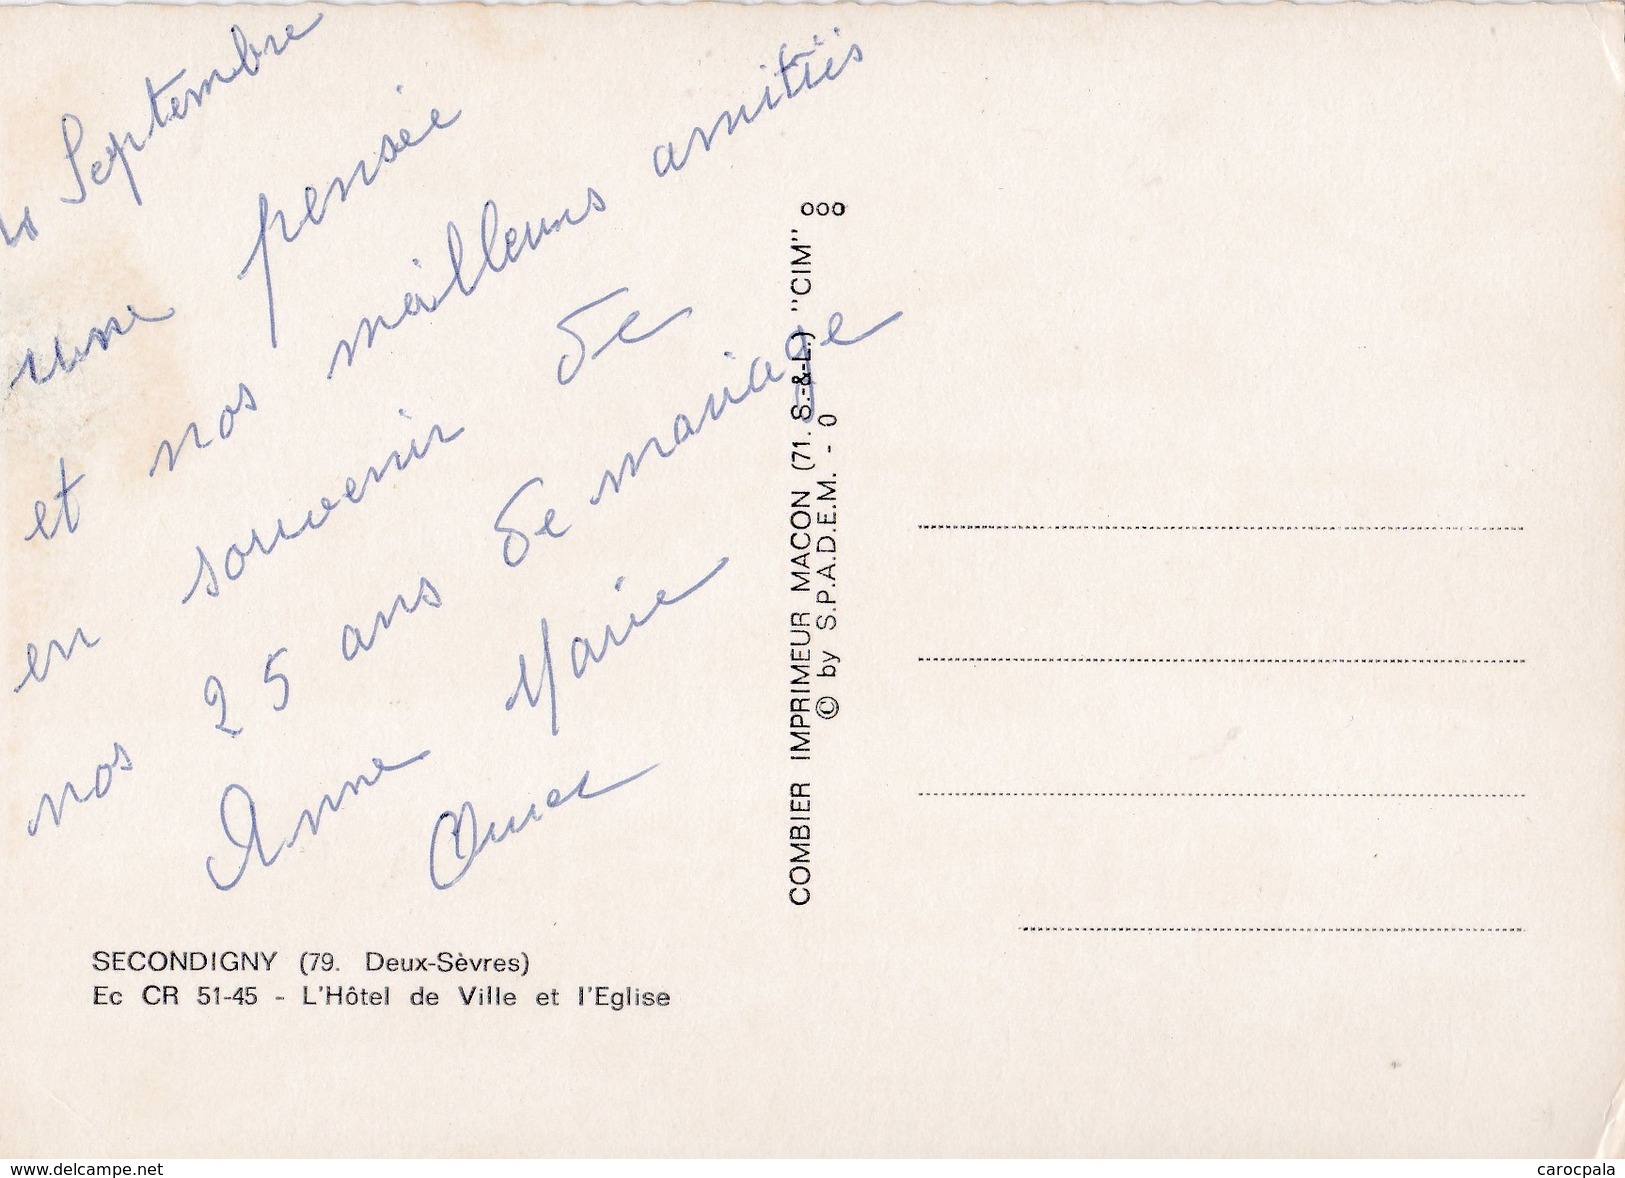 Septembre
une pensée
et nos meilleurs amitiés
en souvenir de
nos 25 ans de mariage
Anne Marie
SECONDIGNY (79. Deux-Sèvres)
Ec CR 51-45 - L'Hôtel de Ville et l'Eglise
COMBIER IMPRIMEUR MACON (71. S.-&-L.) "CIM"
© by S.P.A.D.E.M. - 0
ooo
www.delcampe.net
carocpala